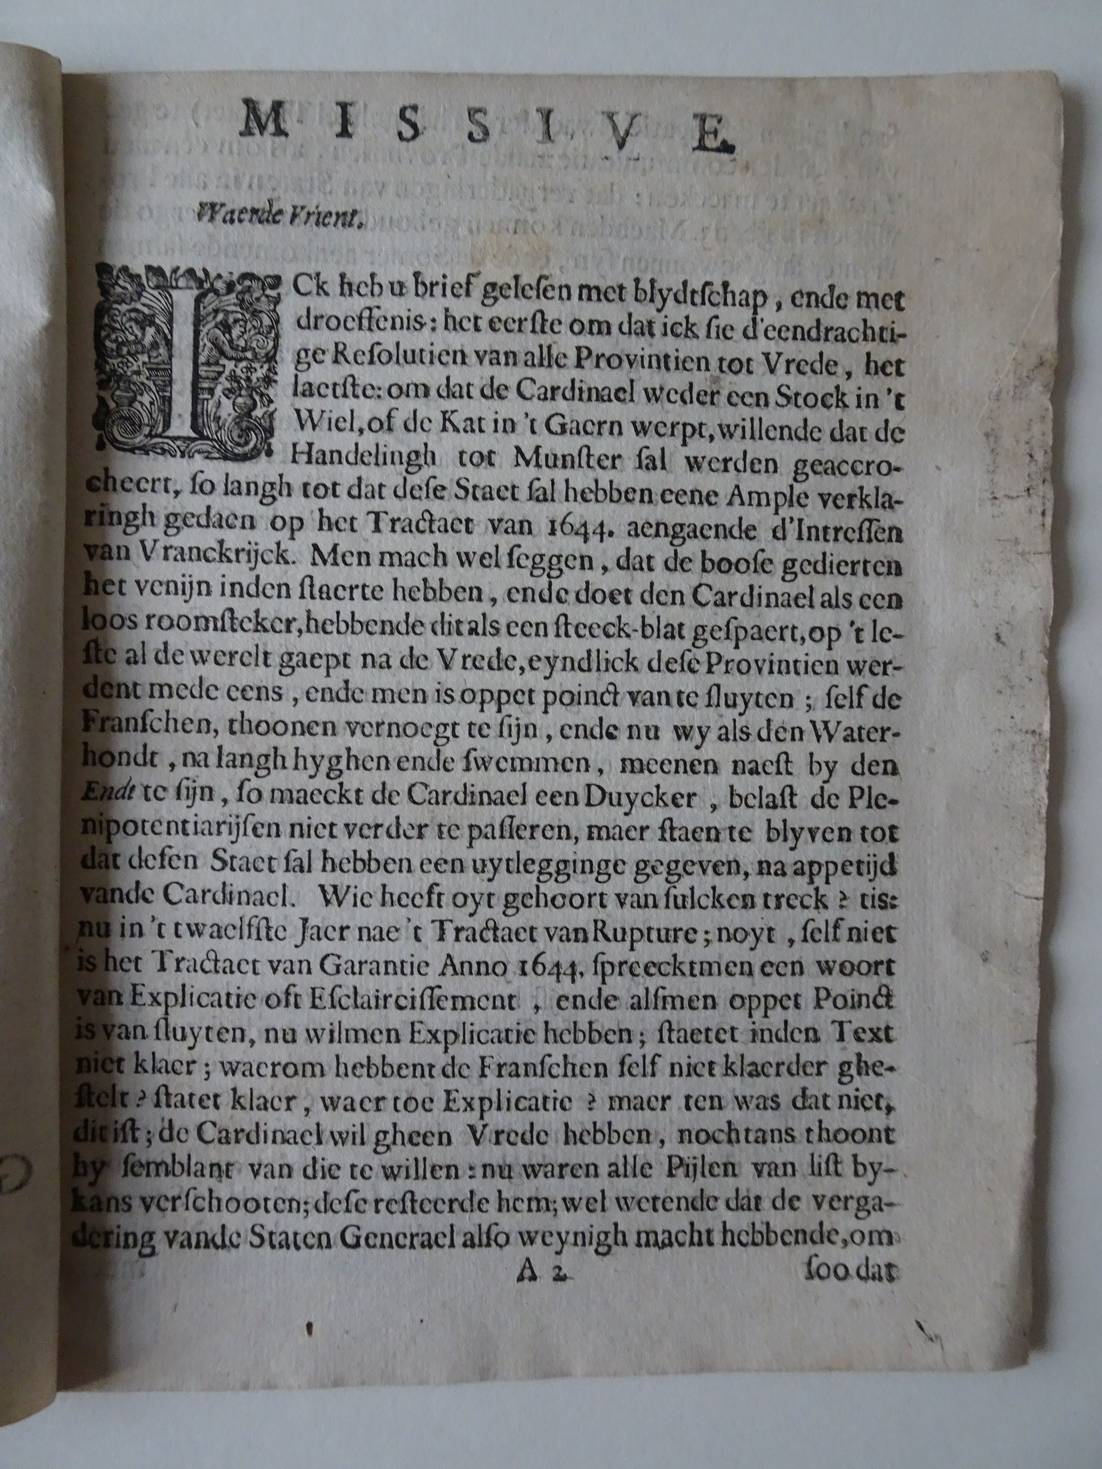 MISSIVE.
Waerde Vrient.
ICk heb u brief geleſen met blydtſchap, ende met
droeffenis: het eerſte om dat ick ſie d'eendrachti-
ge Reſolutien van alle Provintien tot Vrede, het
laetſte: om dat de Cardinael weder een Stock in 't
Wiel, of de Kat in 't Gaern werpt, willende dat de
Handelingh tot Munſter ſal werden geaccro-
cheert, ſo langh tot dat deſe Staet ſal hebben eene Ample verkla-
ringh gedaen op het Tractaet van 1644. aengaende d'Intreſſen
van Vranckrijck. Men mach wel ſeggen, dat de booſe gedierten
het venijn inden ſtaerte hebben, ende doet den Cardinael als een
loos roomſteker, hebbende dit als een ſteeck-blat geſpaert, op 't le-
ſte al de werelt gaept na de Vrede, eyndlick deſe Provintien wer-
dent mede eens, ende men is oppet poinct van te ſluyten; ſelf de
Franſchen, thoonen vernoegt te ſijn, ende nu wy als den Water-
hondt, na langh hyghen ende ſwemmen, meenen naeſt by den
Endt te ſijn, ſo maeckt de Cardinael een Duycker, belaſt de Ple-
nipotentiarijſen niet verder te paſſeren, maer ſtaen te blyven tot
dat deſen Staet ſal hebben een uytlegginge gegeven, na appetijd
vande Cardinael. Wie heeft oyt gehoort van ſulcken treck? tis:
nu in 't twaelfſte Jaer nae 't Tractaet van Rupture; noyt, ſelf niet
is het Tractaet van Garantie Anno 1644, ſpreecktmen een woort
van Explicatie oft Eſclairciſſement, ende alſmen oppet Poinct
is van ſluyten, nu wilmen Explicatie hebben; ſtaetet inden Text
niet klaer; waerom hebbent de Franſchen ſelf niet klaerder ghe-
ſtelt? ſtatet klaer, waer toe Explicatie? maer ten was dat niet,
dit iſt; de Cardinael wil gheen Vrede hebben, nochtans thoont
hy ſemblant van die te willen: nu waren alle Pijlen van liſt by-
kans verſchooten; deſe reſteerde hem; wel wetende dat de verga-
dering vande Staten Generael alſo weynigh macht hebbende, om
A 2 ſoo dat